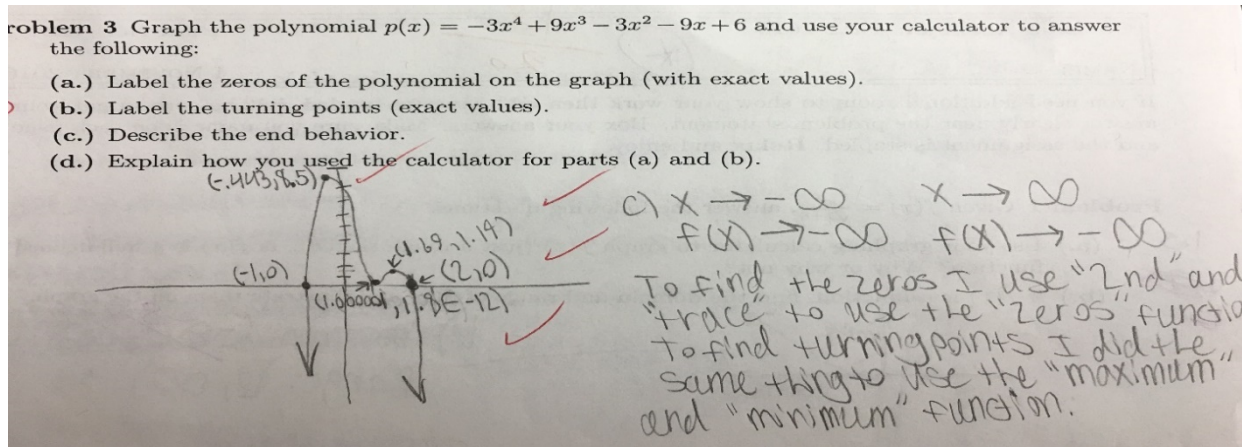 roblem 3 Graph the polynomial p(x) = −3x⁴ + 9x³ − 3x² − 9x + 6 and use your calculator to answer
the following:
(a.) Label the zeros of the polynomial on the graph (with exact values).
(b.) Label the turning points (exact values).
(c.) Describe the end behavior.
(d.) Explain how you used the calculator for parts (a) and (b).
(-.443, 8.5)
(1.69, 1.14)
(-1,0)
(2,0)
(1.000001, 1.8E,-12)
c) x → -∞ x → ∞
f(x) → -∞ f(x) → -∞
To find the zeros I use "2nd" and
"trace" to use the "zeros" functio
To find turning points I did the
same thing to use the "maximum"
and "minimum" function.